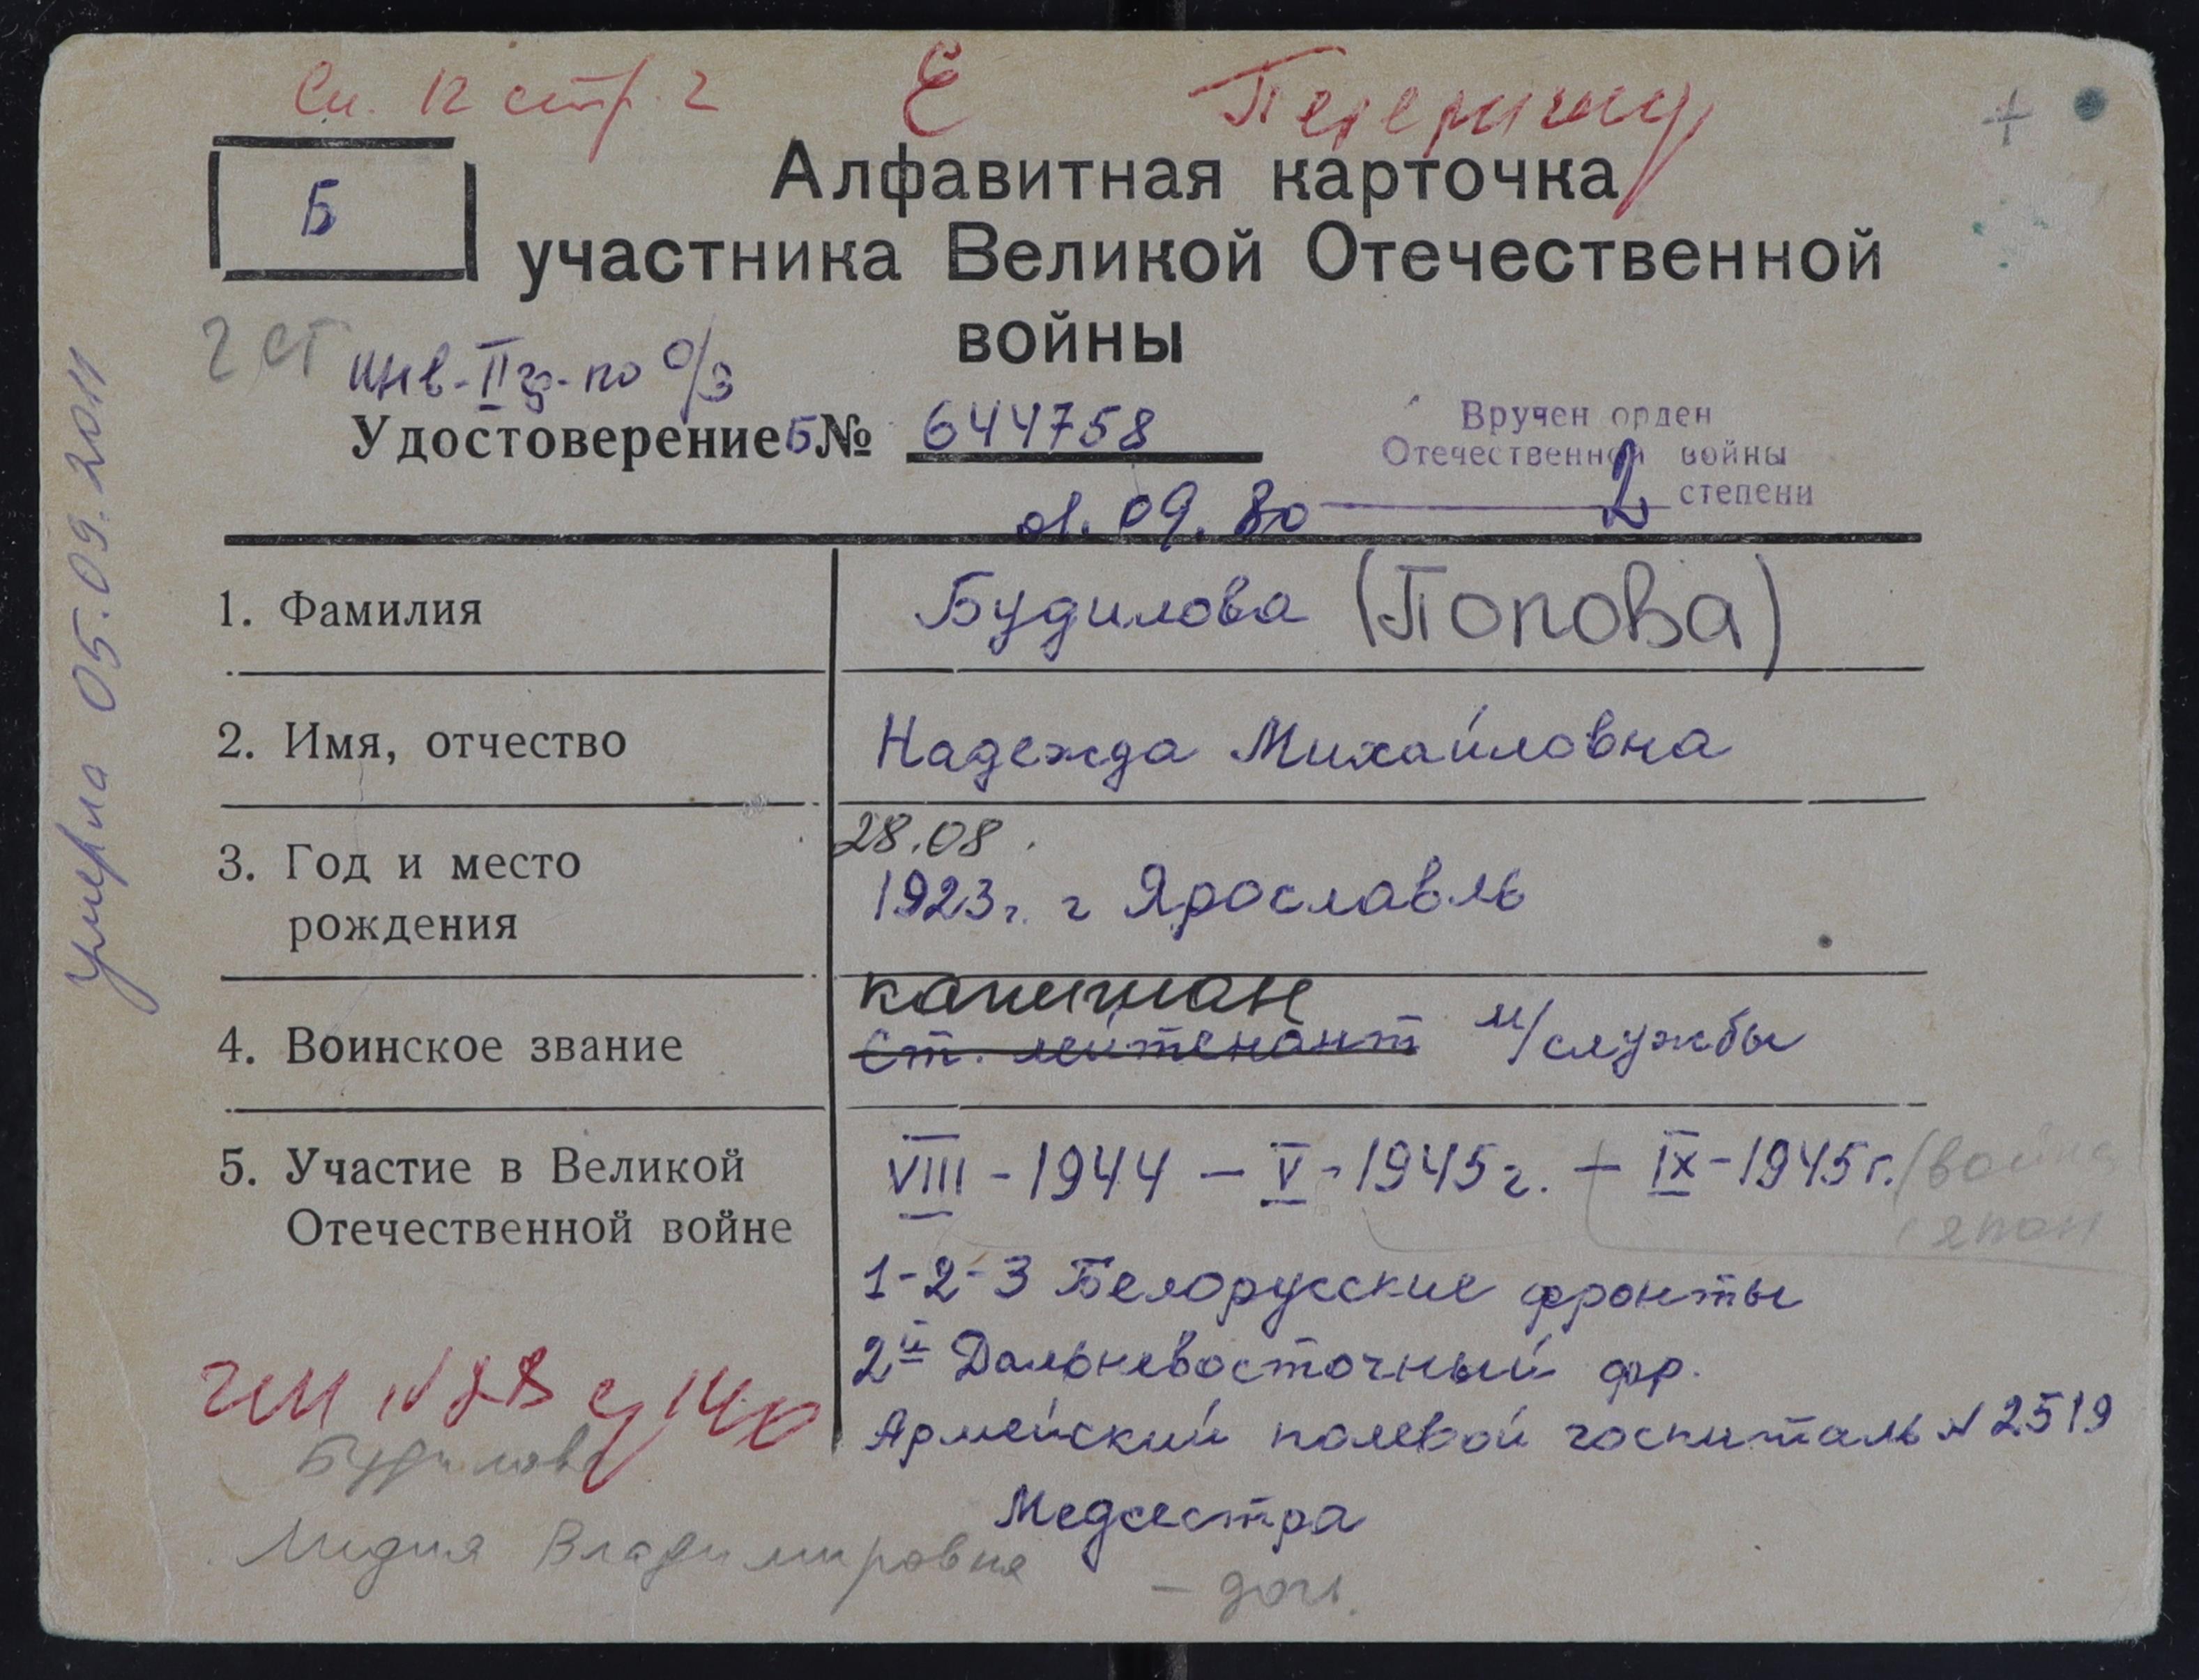 Сп. 12 стр. 2 Е
Б
Алфавитная карточка
участника Великой Отечественной
войны
2 ст
инв-II гр-по о/з
Удостоверение Б № 644758
01.09.80
Вручен орден
Отечественной войны
2 степени
умерла 05.09.2011
1. Фамилия Будилова (Попова)
2. Имя, отчество Надежда Михайловна
3. Год и место
рождения
28.08.
1923г. г Ярославль
капитан
4. Воинское звание ст. лейтенант м/службы
5. Участие в Великой
Отечественной войне
VIII-1944 - V-1945г. + IX-1945г. (война
япон
1-2-3 Белорусские фронты
2й Дальневосточный фр.
Армейский полевой госпиталь N 2519
Медсестра
Будилова
Лидия Владимировна - дочь.